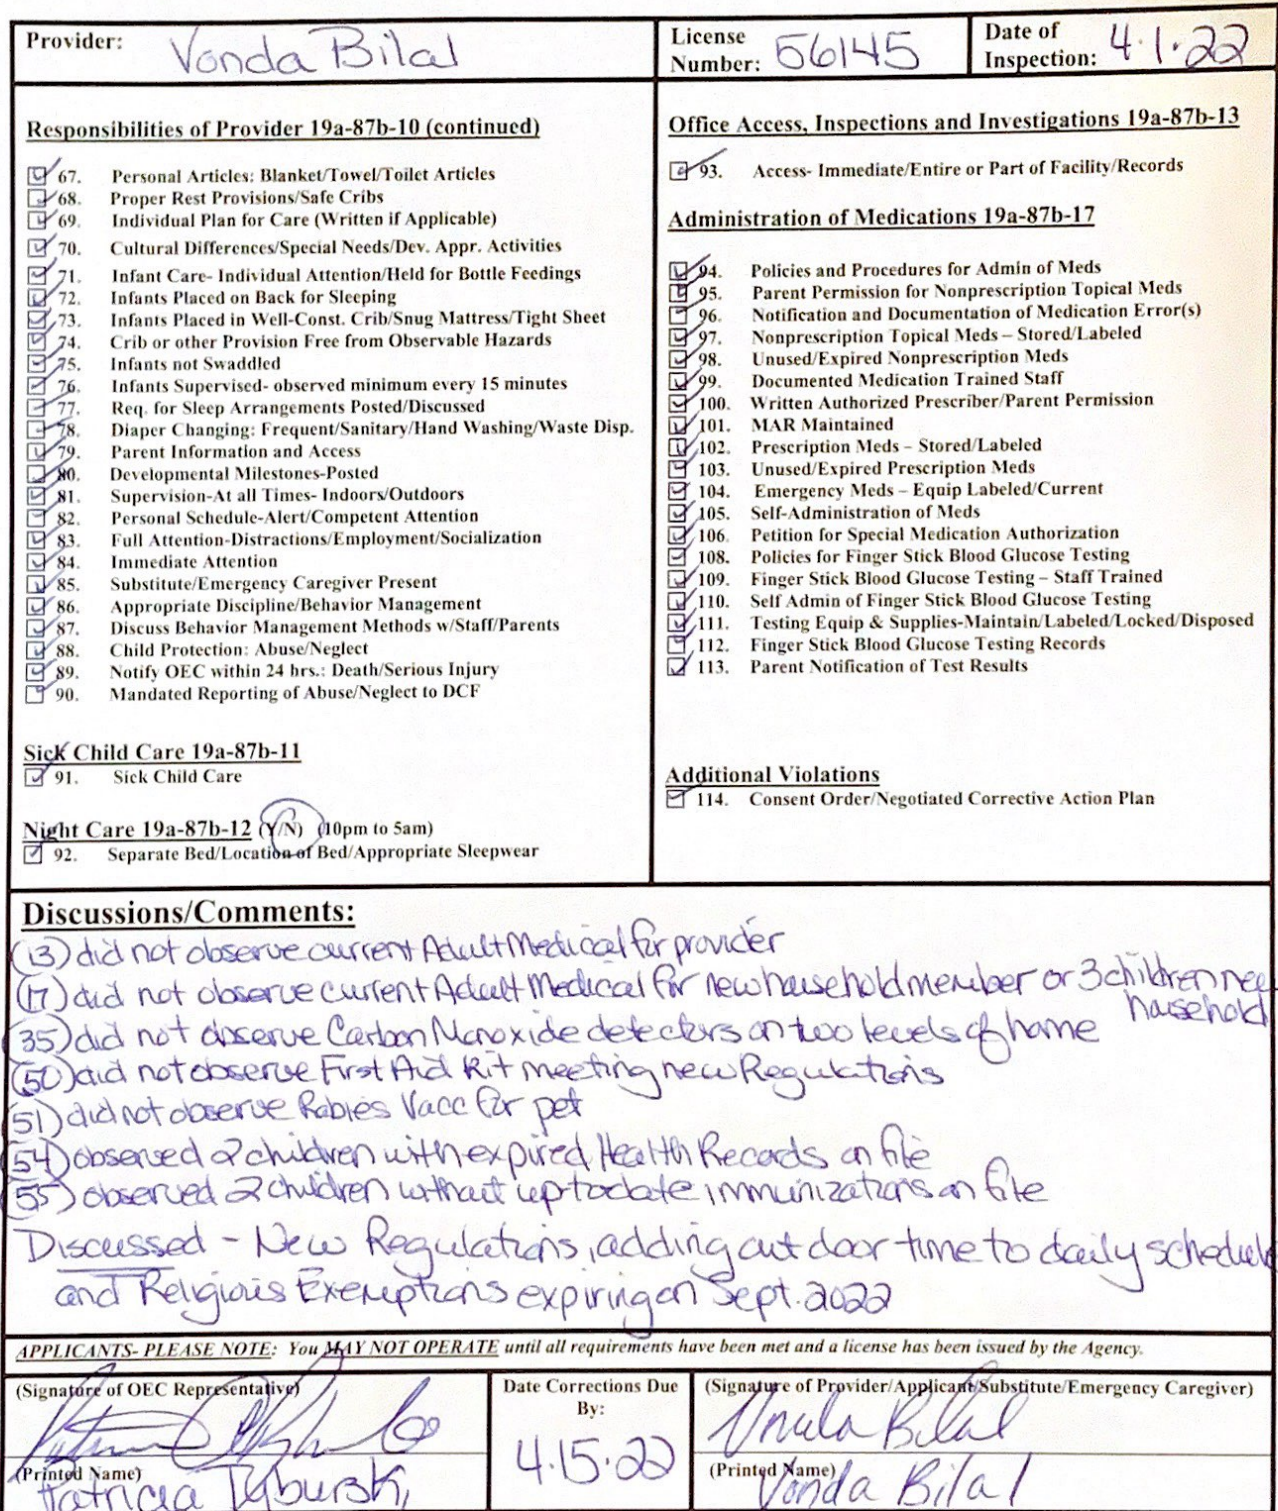 Provider: Vonda Bilal
License Number: 56145
Date of Inspection: 4.1.22
Responsibilities of Provider 19a-87b-10 (continued)
67. Personal Articles: Blanket/Towel/Toilet Articles
68. Proper Rest Provisions/Safe Cribs
69. Individual Plan for Care (Written if Applicable)
70. Cultural Differences/Special Needs/Dev. Appr. Activities
71. Infant Care- Individual Attention/Held for Bottle Feedings
72. Infants Placed on Back for Sleeping
73. Infants Placed in Well-Const. Crib/Snug Mattress/Tight Sheet
74. Crib or other Provision Free from Observable Hazards
75. Infants not Swaddled
76. Infants Supervised- observed minimum every 15 minutes
77. Req. for Sleep Arrangements Posted/Discussed
78. Diaper Changing: Frequent/Sanitary/Hand Washing/Waste Disp.
79. Parent Information and Access
80. Developmental Milestones-Posted
81. Supervision-At all Times- Indoors/Outdoors
82. Personal Schedule-Alert/Competent Attention
83. Full Attention-Distractions/Employment/Socialization
84. Immediate Attention
85. Substitute/Emergency Caregiver Present
86. Appropriate Discipline/Behavior Management
87. Discuss Behavior Management Methods w/Staff/Parents
88. Child Protection: Abuse/Neglect
89. Notify OEC within 24 hrs.: Death/Serious Injury
90. Mandated Reporting of Abuse/Neglect to DCF
Sick Child Care 19a-87b-11
91. Sick Child Care
Night Care 19a-87b-12 (Y/N) (10pm to 5am)
92. Separate Bed/Location of Bed/Appropriate Sleepwear
Office Access, Inspections and Investigations 19a-87b-13
93. Access- Immediate/Entire or Part of Facility/Records
Administration of Medications 19a-87b-17
94. Policies and Procedures for Admin of Meds
95. Parent Permission for Nonprescription Topical Meds
96. Notification and Documentation of Medication Error(s)
97. Nonprescription Topical Meds – Stored/Labeled
98. Unused/Expired Nonprescription Meds
99. Documented Medication Trained Staff
100. Written Authorized Prescriber/Parent Permission
101. MAR Maintained
102. Prescription Meds – Stored/Labeled
103. Unused/Expired Prescription Meds
104. Emergency Meds – Equip Labeled/Current
105. Self-Administration of Meds
106. Petition for Special Medication Authorization
108. Policies for Finger Stick Blood Glucose Testing
109. Finger Stick Blood Glucose Testing – Staff Trained
110. Self Admin of Finger Stick Blood Glucose Testing
111. Testing Equip & Supplies-Maintain/Labeled/Locked/Disposed
112. Finger Stick Blood Glucose Testing Records
113. Parent Notification of Test Results
Additional Violations
114. Consent Order/Negotiated Corrective Action Plan
Discussions/Comments:
(13) did not observe current Adult Medical for provider
(17) did not observe current Adult Medical for new household member or 3 children new
household
(35) did not observe Carbon Monoxide detectors on two levels of home
(50) did not observe First Aid Kit meeting new Regulations
(51) did not observe Rabies Vacc for pet
(54) observed 2 children with expired Health Records on file
(55) observed 2 children without up to date immunizations on file
Discussed - New Regulations, adding out door time to daily schedule
and Religious Exemptions expiring on Sept. 2022
APPLICANTS- PLEASE NOTE: You MAY NOT OPERATE until all requirements have been met and a license has been issued by the Agency.
(Signature of OEC Representative)
(Printed Name)
Patricia Tyburski
Date Corrections Due By:
4.15.22
(Signature of Provider/Applicant/Substitute/Emergency Caregiver)
Vonda Bilal
(Printed Name)
Vonda Bilal